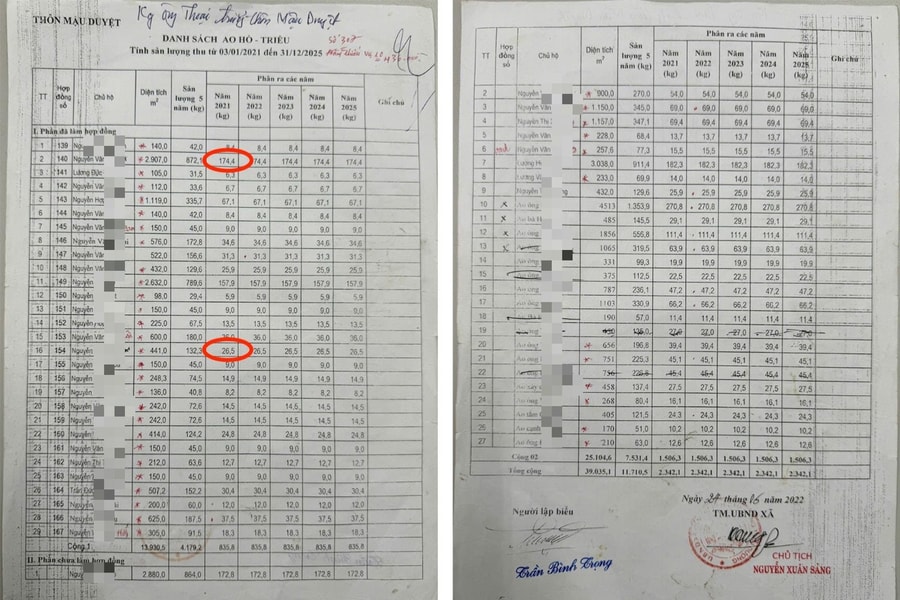 Kg ông Thoại trưởng thôn Mậu Duyệt
THÔN MẬU DUYỆT
DANH SÁCH AO HỒ - TRIỀU
Tính sản lượng thu từ 03/01/2021 đến 31/12/2025
Số 307
TT Hợp đồng số Chủ hộ Diện tích m² Sản lượng 5 năm (kg) Phân ra các năm Ghi chú
Năm 2021 (kg) Năm 2022 (kg) Năm 2023 (kg) Năm 2024 (kg) Năm 2025 (kg)
I. Phần đã làm hợp đồng
1 139 140,0 42,0 8,4 8,4 8,4 8,4 8,4
2 140 Nguyễn Văn 2.907,0 872,1 174,4 174,4 174,4 174,4 174,4
3 141 Lương Đức 105,0 31,5 6,3 6,3 6,3 6,3 6,3
4 142 Nguyễn Văn 112,0 33,6 6,7 6,7 6,7 6,7 6,7
5 143 Nguyễn 1.119,0 335,7 67,1 67,1 67,1 67,1 67,1
6 144 Nguyễn Văn 140,0 42,0 8,4 8,4 8,4 8,4 8,4
7 145 Nguyễn Văn 150,0 45,0 9,0 9,0 9,0 9,0 9,0
8 146 Nguyễn Văn 576,0 172,8 34,6 34,6 34,6 34,6 34,6
9 147 Nguyễn Văn 522,0 156,6 31,3 31,3 31,3 31,3 31,3
10 148 Nguyễn Văn 432,0 129,6 25,9 25,9 25,9 25,9 25,9
11 149 Nguyễn 2.632,0 789,6 157,9 157,9 157,9 157,9 157,9
12 150 Nguyễn 98,0 29,4 5,9 5,9 5,9 5,9 5,9
13 151 Nguyễn 150,0 45,0 9,0 9,0 9,0 9,0 9,0
14 152 Nguyễn 225,0 67,5 13,5 13,5 13,5 13,5 13,5
15 153 Nguyễn Văn 600,0 180,0 36,0 36,0 36,0 36,0 36,0
16 154 Nguyễn 441,0 132,3 26,5 26,5 26,5 26,5 26,5
17 155 Nguyễn 150,0 45,0 9,0 9,0 9,0 9,0 9,0
18 156 Nguyễn 248,3 74,5 14,9 14,9 14,9 14,9 14,9
19 157 Nguyễn 136,0 40,8 8,2 8,2 8,2 8,2 8,2
20 158 Nguyễn 242,0 72,6 14,5 14,5 14,5 14,5 14,5
21 159 Nguyễn 242,0 72,6 14,5 14,5 14,5 14,5 14,5
22 160 Nguyễn 414,0 124,2 24,8 24,8 24,8 24,8 24,8
23 161 Nguyễn Văn 150,0 45,0 9,0 9,0 9,0 9,0 9,0
24 162 Nguyễn Thị 212,0 63,6 12,7 12,7 12,7 12,7 12,7
25 163 Nguyễn 150,0 45,0 9,0 9,0 9,0 9,0 9,0
26 164 Trần Đức 507,2 152,2 30,4 30,4 30,4 30,4 30,4
27 165 Nguyễn 200,0 60,0 12,0 12,0 12,0 12,0 12,0
28 166 Nguyễn 625,0 187,5 37,5 37,5 37,5 37,5 37,5
29 167 Nguyễn 305,0 91,5 18,3 18,3 18,3 18,3 18,3
Cộng 1 13.930,5 4.179,2 835,8 835,8 835,8 835,8 835,8
II. Phần chưa làm hợp đồng
1 Nguyễn 2.880,0 864,0 172,8 172,8 172,8 172,8 172,8
TT Hợp đồng số Chủ hộ Diện tích m² Sản lượng 5 năm (kg) Phân ra các năm Ghi chú
Năm 2021 (kg) Năm 2022 (kg) Năm 2023 (kg) Năm 2024 (kg) Năm 2025 (kg)
2 Nguyễn 900,0 270,0 54,0 54,0 54,0 54,0 54,0
3 Nguyễn Văn 1.150,0 345,0 69,0 69,0 69,0 69,0 69,0
4 Nguyễn Thị 1.157,0 347,1 69,4 69,4 69,4 69,4 69,4
5 Nguyễn Văn 228,0 68,4 13,7 13,7 13,7 13,7 13,7
6 Nguyễn Văn 257,6 77,3 15,5 15,5 15,5 15,5 15,5
7 Lương 3.038,0 911,4 182,3 182,3 182,3 182,3 182,3
8 Lương 233,0 69,9 14,0 14,0 14,0 14,0 14,0
9 Nguyễn 432,0 129,6 25,9 25,9 25,9 25,9 25,9
10 x Ao ông 4513 1.353,9 270,8 270,8 270,8 270,8 270,8
11 x Ao bà 485 145,5 29,1 29,1 29,1 29,1 29,1
12 x Ao ông 1856 556,8 111,4 111,4 111,4 111,4 111,4
13 x Ao ông 1065 319,5 63,9 63,9 63,9 63,9 63,9
14 Ao ông 331 99,3 19,9 19,9 19,9 19,9 19,9
15 Ao ông 375 112,5 22,5 22,5 22,5 22,5 22,5
16 Ao ông 787 236,1 47,2 47,2 47,2 47,2 47,2
17 Ao ông 1103 330,9 66,2 66,2 66,2 66,2 66,2
18 190 57,0 11,4 11,4 11,4 11,4 11,4
19 Ao ông 135,0 27,0 27,0 27,0 27,0 27,0
20 Ao ông 656 196,8 39,4 39,4 39,4 39,4 39,4
21 Ao ông 751 225,3 45,1 45,1 45,1 45,1 45,1
22 Ao ông 756 226,8 45,4 45,4 45,4 45,4 45,4
23 458 137,4 27,5 27,5 27,5 27,5 27,5
24 Ao ông 268 80,4 16,1 16,1 16,1 16,1 16,1
25 405 121,5 24,3 24,3 24,3 24,3 24,3
26 Ao cạnh 170 51,0 10,2 10,2 10,2 10,2 10,2
27 Ao ông 210 63,0 12,6 12,6 12,6 12,6 12,6
Cộng 02 25.104,6 7.531,4 1.506,3 1.506,3 1.506,3 1.506,3 1.506,3
Tổng cộng 39.035,1 11.710,5 2.342,1 2.342,1 2.342,1 2.342,1 2.342,1
Ngày 24 tháng 05 năm 2022
Người lập biểu
TM.UBND XÃ
CHỦ TỊCH
Trần Bình Trọng
NGUYỄN XUÂN SÁNG